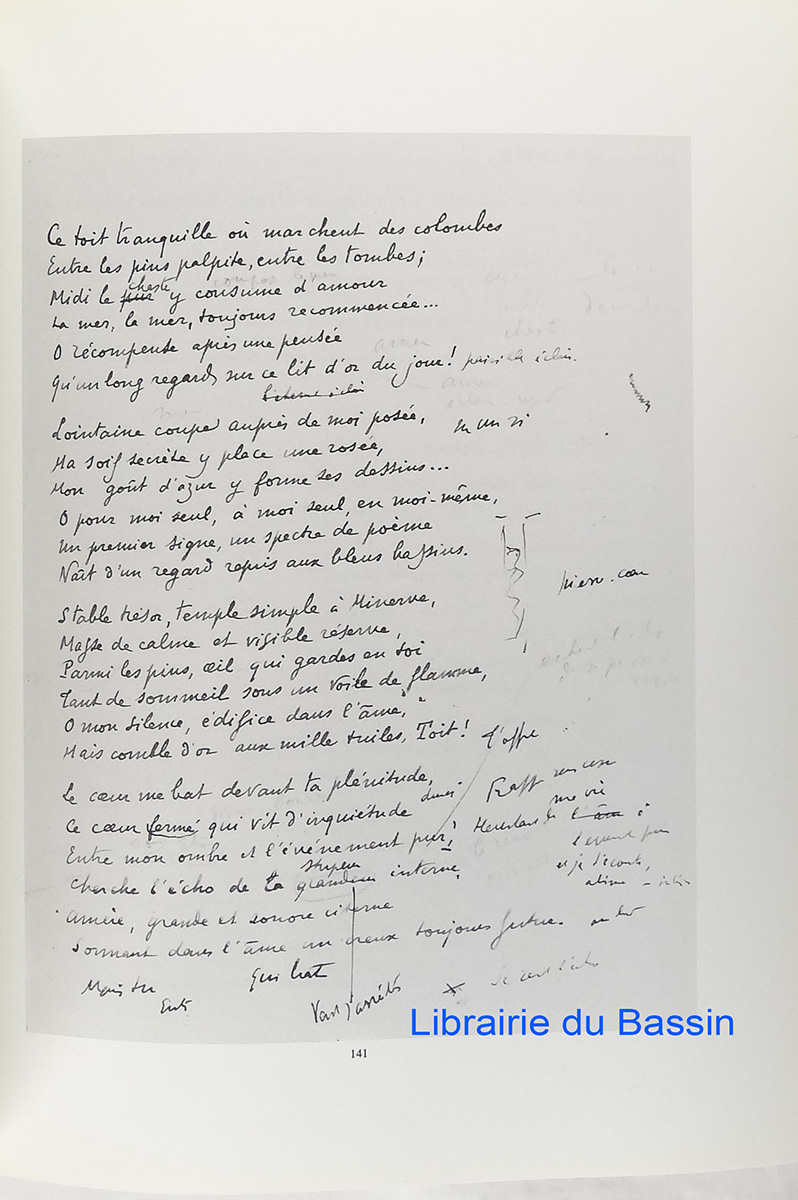 Ce toit tranquille où marchent des colombes
Entre les pins palpite, entre les tombes;
chaste
Midi le pur y consume d'amour
La mer, la mer, toujours recommencée...
O récompense après une pensée
Qu'un long regard sur ce lit d'or du jour!
Lointaine coupe auprès de moi posée,
Ma soif secrète y place une rosée,
Mon goût d'azur y forme ses dessins...
O pour moi seul, à moi seul, en moi-même,
Un premier signe, un spectre de poème
Naît d'un regard repris aux bleus bassins.
Stable trésor, temple simple à Minerve,
Masse de calme et visible réserve,
Parmi les pins, œil qui gardes en toi
Tant de sommeil sous un voile de flamme,
O mon silence, édifice dans l'âme,
Mais comble d'or aux mille tuiles, Toit!
Le cœur me bat devant ta plénitude,
Ce cœur fermé qui vit d'inquiétude
Entre mon ombre et l'événement pur!
stupeur
Cherche l'écho de ta grandeur interne,
Amère, grande et sonore citerne
Sonnant dans l'âme un creux toujours futur.
Qui bat
Librairie du Bassin
141